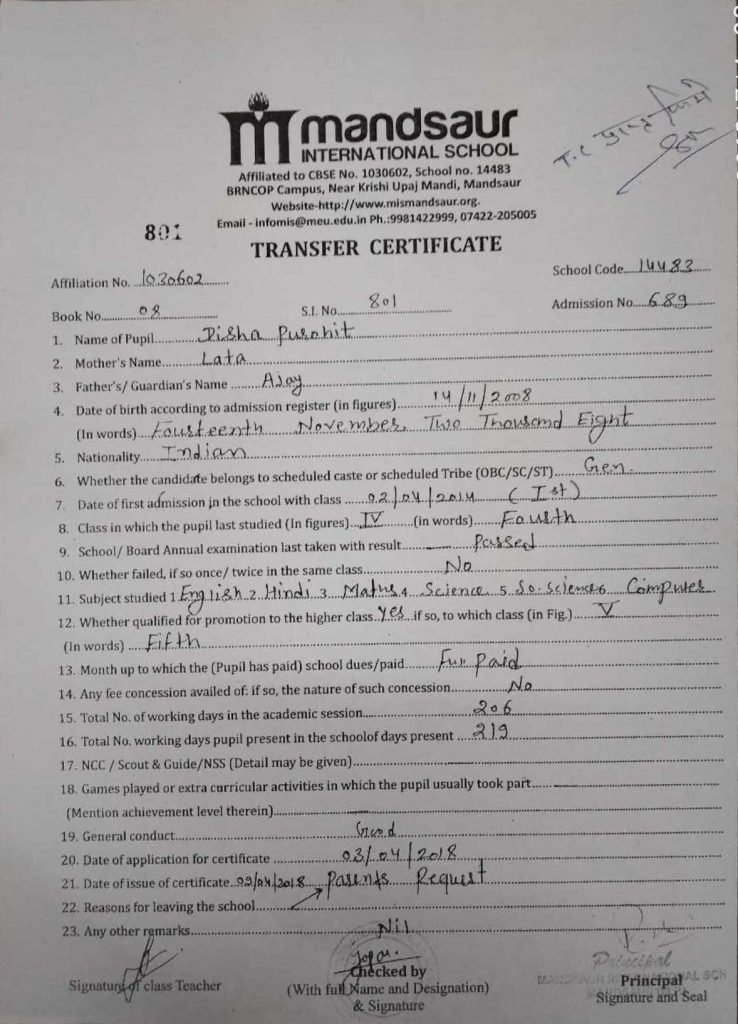 mandsaur
INTERNATIONAL SCHOOL
Affiliated to CBSE No. 1030602, School no. 14483
BRNCOP Campus, Near Krishi Upaj Mandi, Mandsaur
Website-http://www.mismandsaur.org.
Email - infomis@meu.edu.in Ph.:9981422999, 07422-205005
T.C
801
TRANSFER CERTIFICATE
Affiliation No. 1030602 School Code 14483
Book No. 08 S.I. No. 801 Admission No. 689
1. Name of Pupil Disha Purohit
2. Mother's Name Lata
3. Father's/ Guardian's Name Ajay
4. Date of birth according to admission register (in figures) 14/11/2008
(In words) Fourteenth November, Two Thousand Eight
5. Nationality Indian
6. Whether the candidate belongs to scheduled caste or scheduled Tribe (OBC/SC/ST) Gen.
7. Date of first admission in the school with class 02/04/2014 (Ist)
8. Class in which the pupil last studied (In figures) IV (in words) Fourth
9. School/ Board Annual examination last taken with result Passed
10. Whether failed, if so once/ twice in the same class No
11. Subject studied 1 English 2 Hindi 3 Maths 4 Science 5 So-science 6 Computer
12. Whether qualified for promotion to the higher class Yes if so, to which class (in Fig.) V
(In words) Fifth
13. Month up to which the (Pupil has paid) school dues/paid Full Paid
14. Any fee concession availed of: if so, the nature of such concession No
15. Total No. of working days in the academic session 206
16. Total No. working days pupil present in the schoolof days present 219
17. NCC / Scout & Guide/NSS (Detail may be given)
18. Games played or extra curricular activities in which the pupil usually took part
(Mention achievement level therein)
19. General conduct Good
20. Date of application for certificate 03/04/2018
21. Date of issue of certificate 09/04/2018 Parents Request
22. Reasons for leaving the school
23. Any other remarks Nil
Principal
Signature of class Teacher Checked by Principal
(With full Name and Designation) Signature and Seal
& Signature